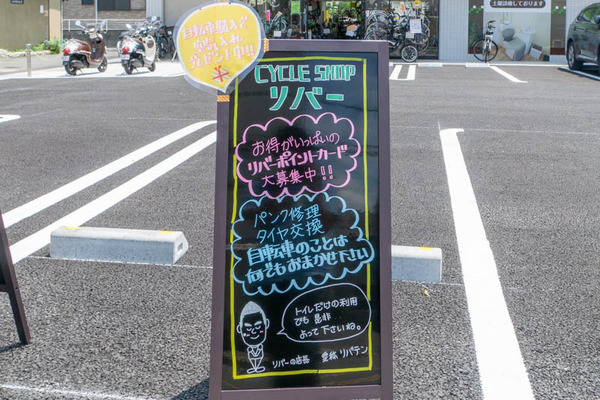 自転車購入で
空気入れ
プレゼント中!!
CYCLE SHOP
リバー
お得がいっぱいの
リバーポイントカード
大募集中!!
パンク修理
タイヤ交換
自転車のことは
何でもおまかせ下さい
トイレだけの利用
でも是非
よって下さいね。
リバーの店長
リバテン